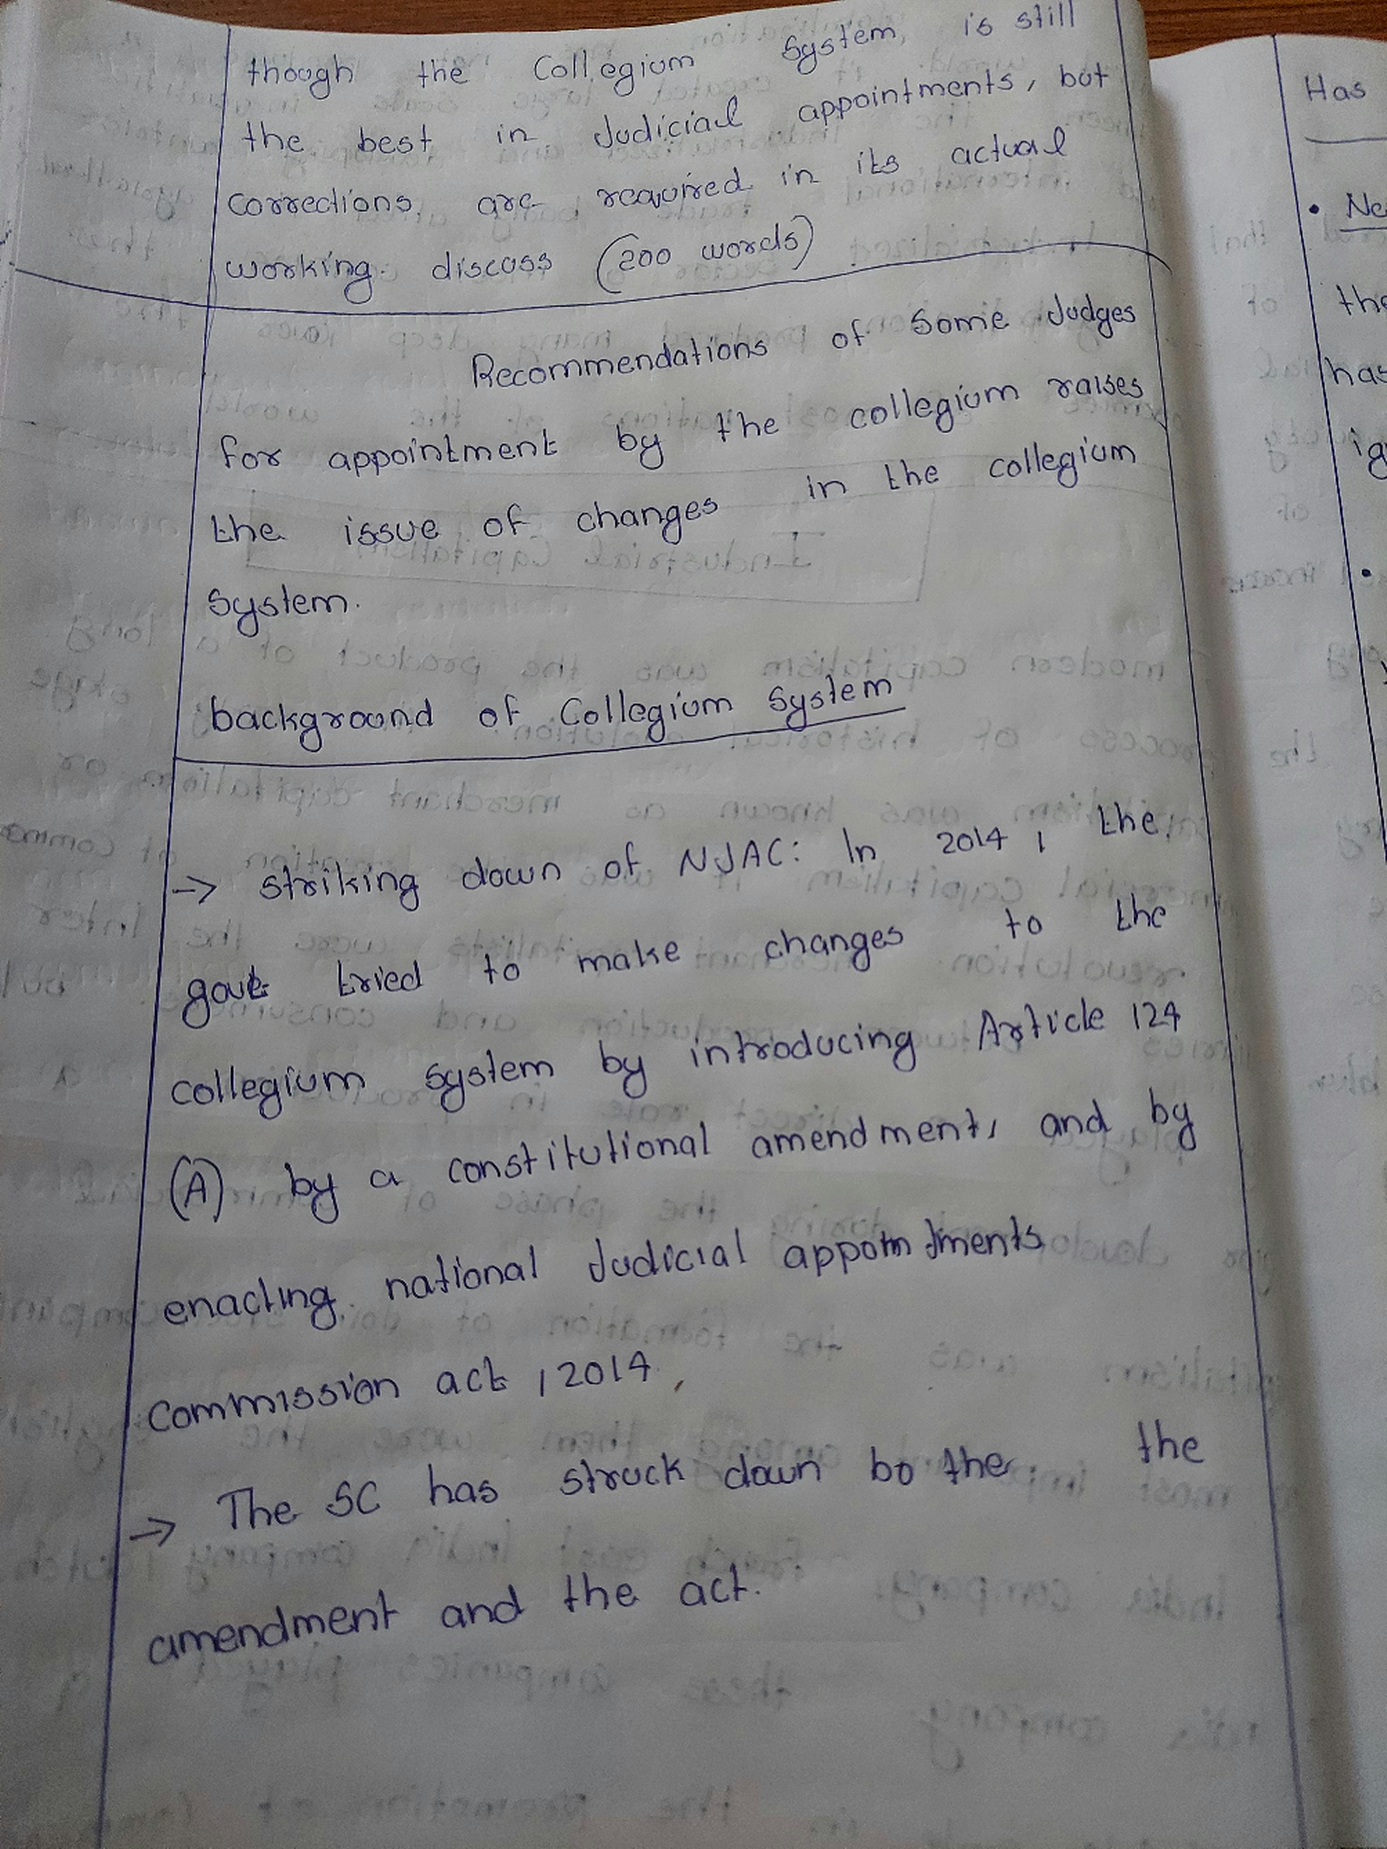 though the Collegium System, is still
the best in Judicial appointments, but
corrections are required in its actual
working. discuss (200 words)
Recommendations of Some Judges
for appointment by the collegium raises
the issue of changes in the collegium
System.
background of Collegium System
→ striking down of NJAC: In 2014, the
govt tried to make changes to the
collegium system by introducing Article 124
(A) by a constitutional amendment, and by
enacting national Judicial appointments
Commission act, 2014,
→ The SC has struck down bo the the
amendment and the act.
Has
• Ne
the
has
ig